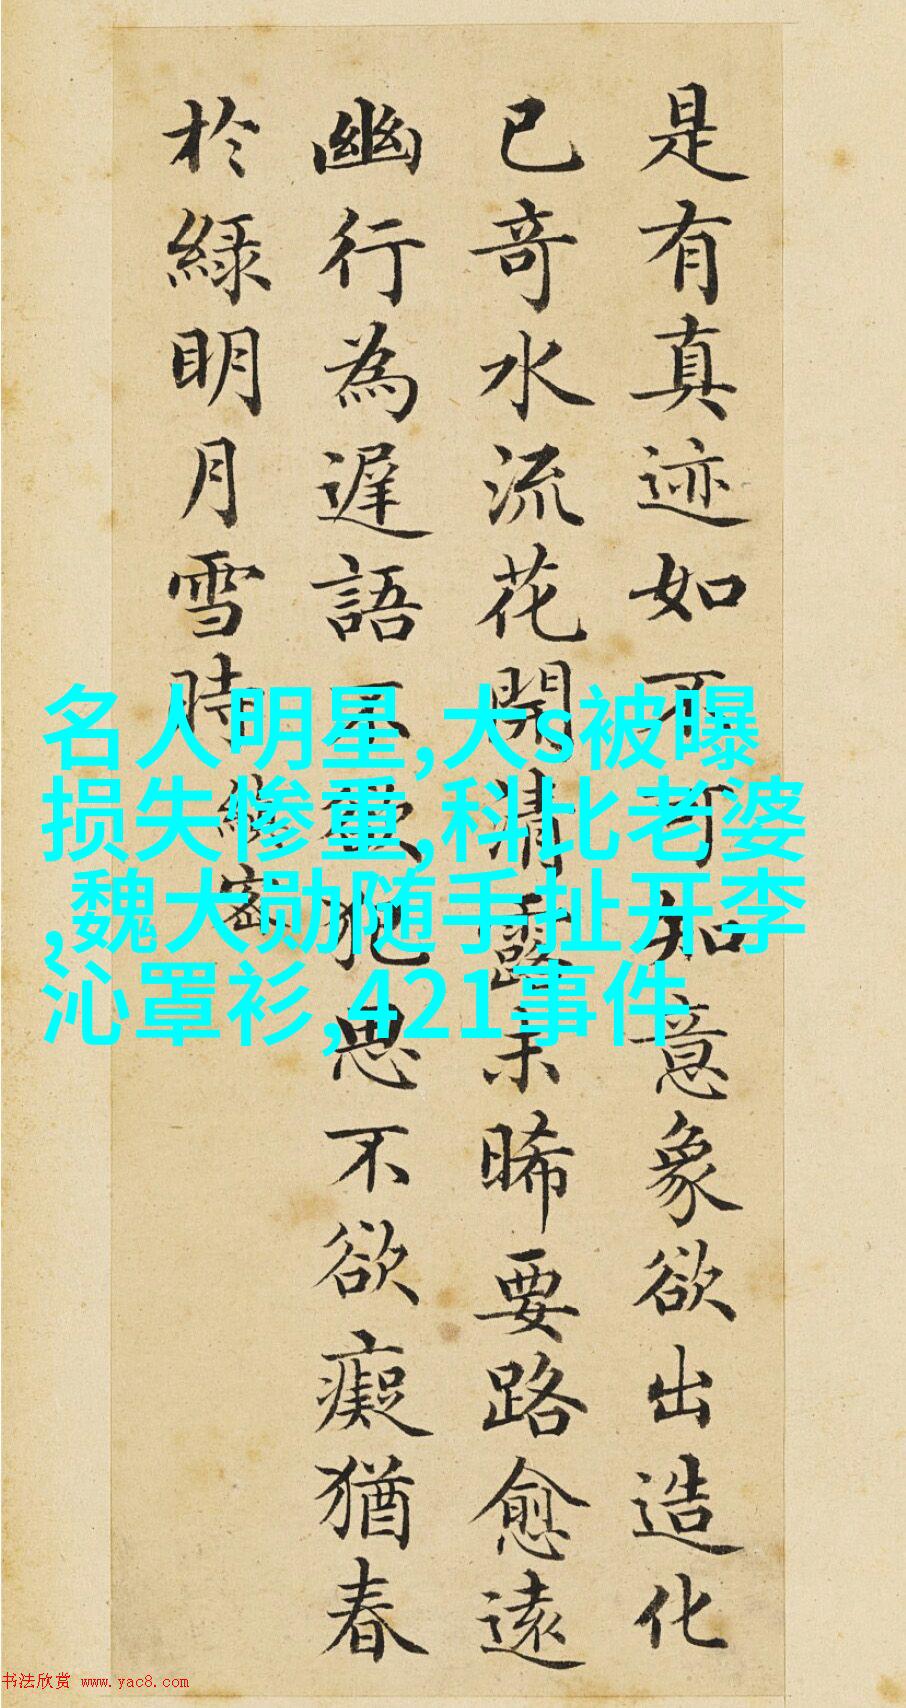 是有真迹如不可知意象欲出造化
已奇水流花開清露未晞要路愈遠
幽行為遲語不欲犯思不欲癡猶春
於綠明月雪時
縝密
名人明星,大s被曝
损失惨重,科比老婆
,魏大勋随手扯开李
沁罩衫,421事件
书法欣赏 www.yac8.com